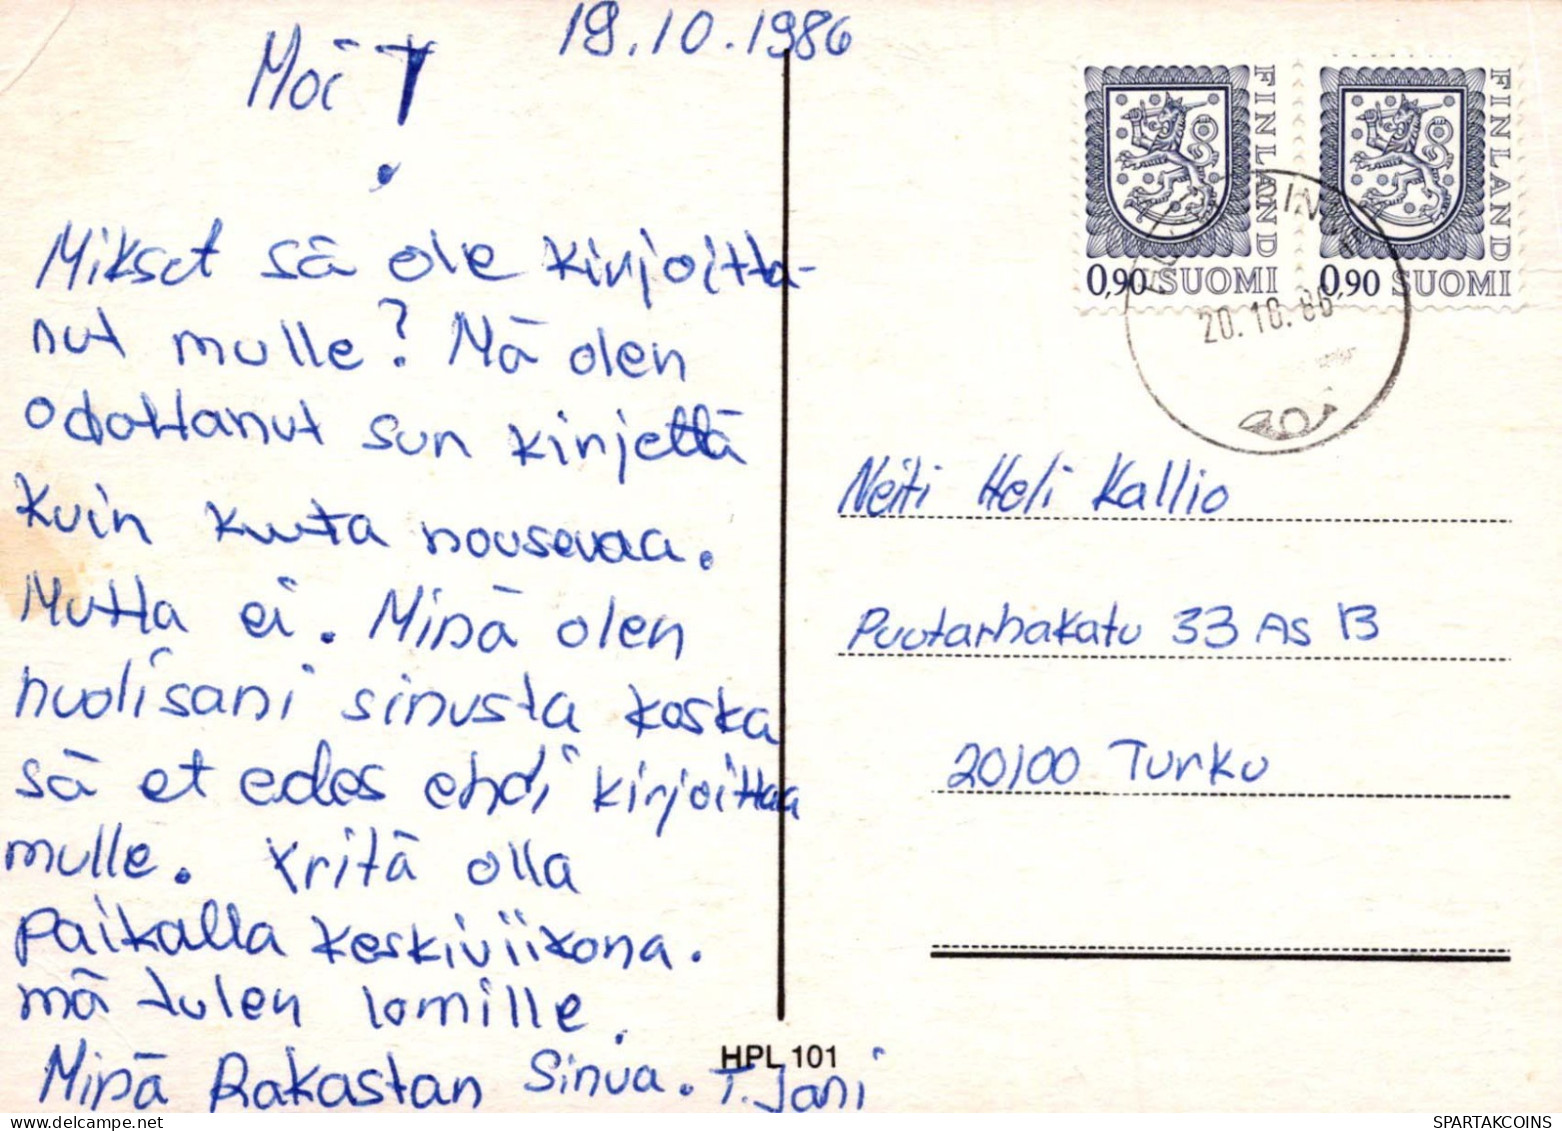 18.10.1986
Moi!
Mikset sä ole kirjoitta-
nut mulle? Mä olen
odottanut sun kirjettä
kuin kuuta nousevaa.
Mutta ei. Minä olen
huolisani sinusta koska
sä et edes ehdi kirjoittaa
mulle. Yritä olla
paikalla keskiviikona.
mä tulen lomille.
Minä Rakastan Sinua. T. Jani
HPL 101
FINLAND
0,90 SUOMI
FINLAND
0,90 SUOMI
20.10.86
Neiti Heli Kallio
Puutarhakatu 33 As 13
20100 Turku
SPARTAKCOINS